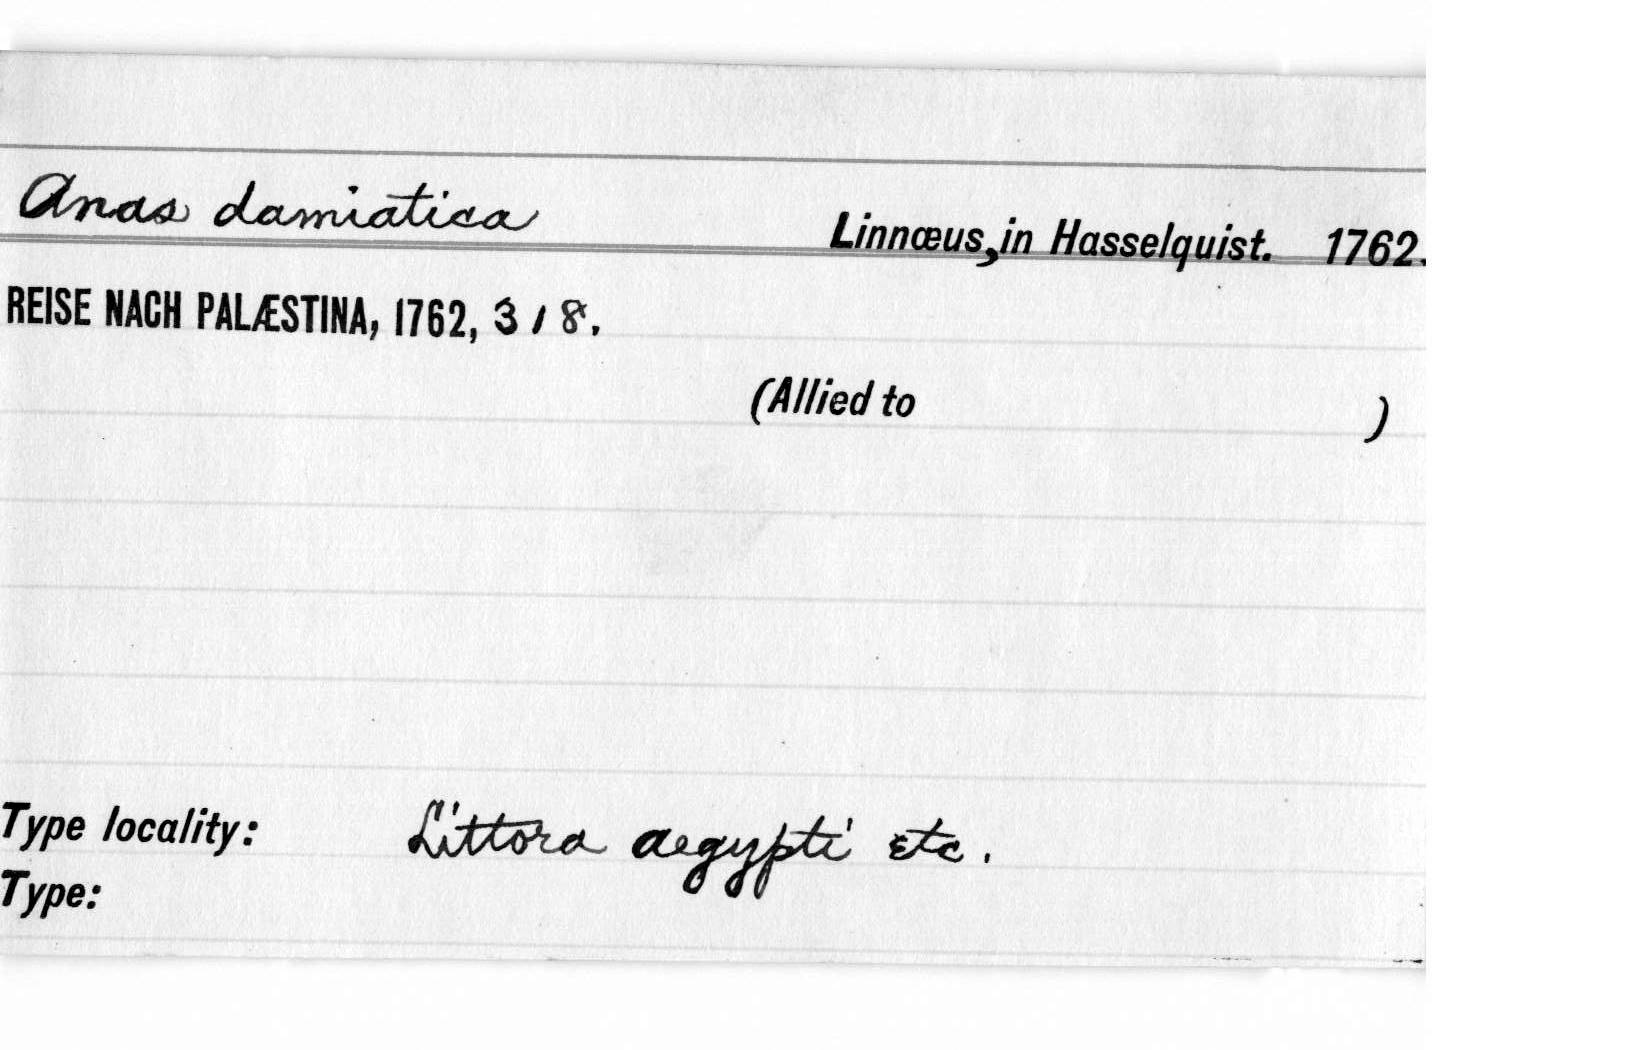 Anas damiatica
Linnæus, in Hasselquist. 1762.
REISE NACH PALÆSTINA, 1762, 318.
(Allied to )
Type locality: Littora aegypti etc.
Type: